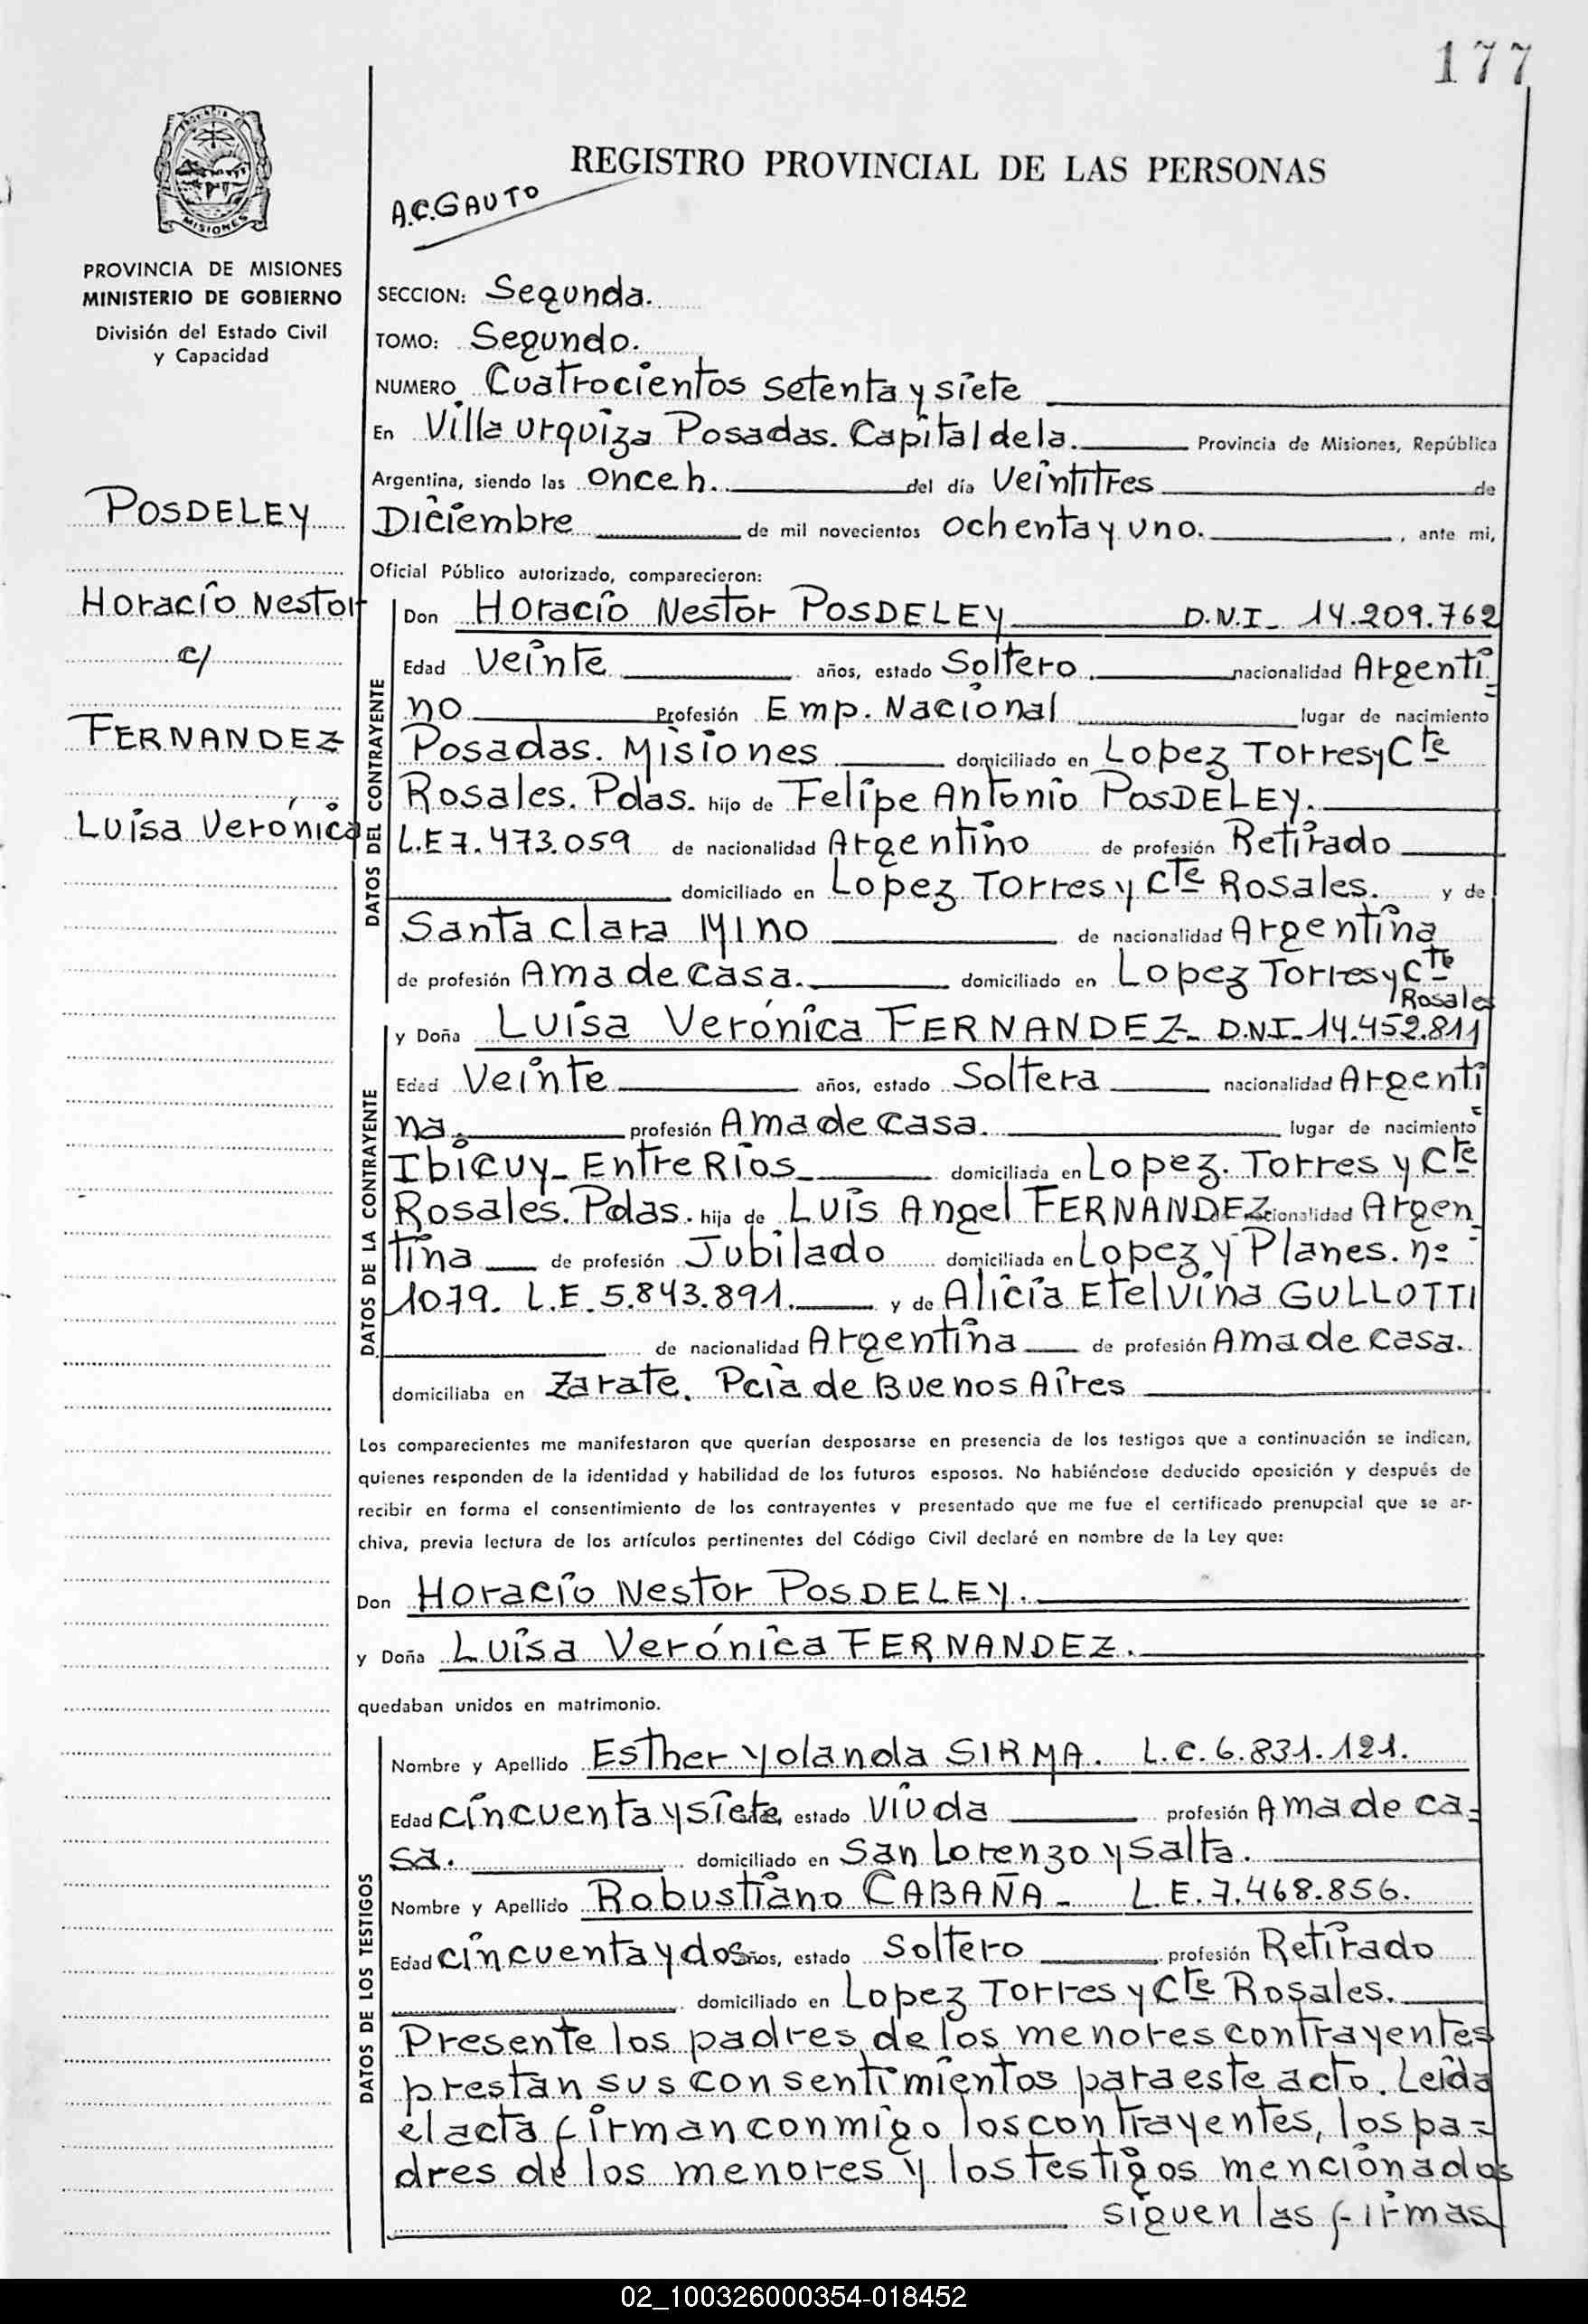 177
PROVINCIA DE MISIONES
REGISTRO PROVINCIAL DE LAS PERSONAS
A.C.GAUTO
PROVINCIA DE MISIONES
MINISTERIO DE GOBIERNO
División del Estado Civil
y Capacidad
POSDELEY
Horacio Nestor
c/
FERNANDEZ
Luisa Verónica
SECCION: Segunda.
TOMO: Segundo.
NUMERO Cuatrocientos setenta y siete
En Villa Urquiza Posadas. Capital de la. Provincia de Misiones, República
Argentina, siendo las once h. del día Veintitres de
Diciembre de mil novecientos ochenta y uno. , ante mi,
Oficial Público autorizado, comparecieron:
DATOS DEL CONTRAYENTE
Don Horacio Nestor POSDELEY D.N.I_ 14.209.762
Edad Veinte años, estado Soltero. nacionalidad Argenti=
no Profesión Emp. Nacional lugar de nacimiento
Posadas. Misiones domiciliado en Lopez Torres y Cte
Rosales. Pdas. hijo de Felipe Antonio POSDELEY.
L.E 7.473.059 de nacionalidad Argentino de profesión Retirado
domiciliado en Lopez Torres y Cte Rosales. y de
Santa Clara Mino de nacionalidad Argentina
de profesión Ama de casa. domiciliado en Lopez Torres y Cte
Rosales
DATOS DE LA CONTRAYENTE
y Doña Luisa Verónica FERNANDEZ_ D.N.I_ 14.452.811
Edad Veinte años, estado Soltera nacionalidad Argenti=
na. profesión Ama de casa. lugar de nacimiento
Ibicuy_ Entre Rios domiciliada en Lopez. Torres y Cte
Rosales. Pdas. hija de Luis Angel FERNANDEZ nacionalidad Argen=
tina de profesión Jubilado domiciliada en Lopez y Planes. nº
1079. L.E. 5.843.891. y de Alicia Etelvina GULLOTTI
de nacionalidad Argentina de profesión Ama de casa.
domiciliaba en Zarate. Pcia de Buenos Aires
Los comparecientes me manifestaron que querían desposarse en presencia de los testigos que a continuación se indican,
quienes responden de la identidad y habilidad de los futuros esposos. No habiéndose deducido oposición y después de
recibir en forma el consentimiento de los contrayentes y presentado que me fue el certificado prenupcial que se ar-
chiva, previa lectura de los artículos pertinentes del Código Civil declaré en nombre de la Ley que:
Don Horacio Nestor POSDELEY.
y Doña Luisa Verónica FERNANDEZ.
quedaban unidos en matrimonio.
DATOS DE LOS TESTIGOS
Nombre y Apellido Esther Yolanda SIRMA. L.C. 6.831.121.
Edad cincuenta y siete años, estado Viuda profesión Ama de ca=
sa. domiciliado en San Lorenzo y Salta.
Nombre y Apellido Robustiano CABAÑA_ L.E. 7.468.856.
Edad cincuenta y dos años, estado Soltero profesión Retirado
domiciliado en Lopez Torres y Cte Rosales.
Presente los padres de los menores contrayentes
prestan sus consentimientos para este acto. Leida
el acta firman conmigo los contrayentes, los pa=
dres de los menores y los testigos mencionados
siguen las firmas
02_100326000354-018452